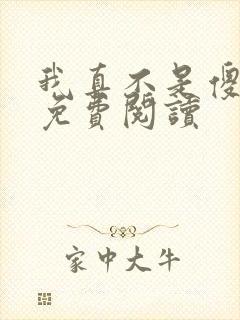 我真不是傻
免費閱讀
家中大牛